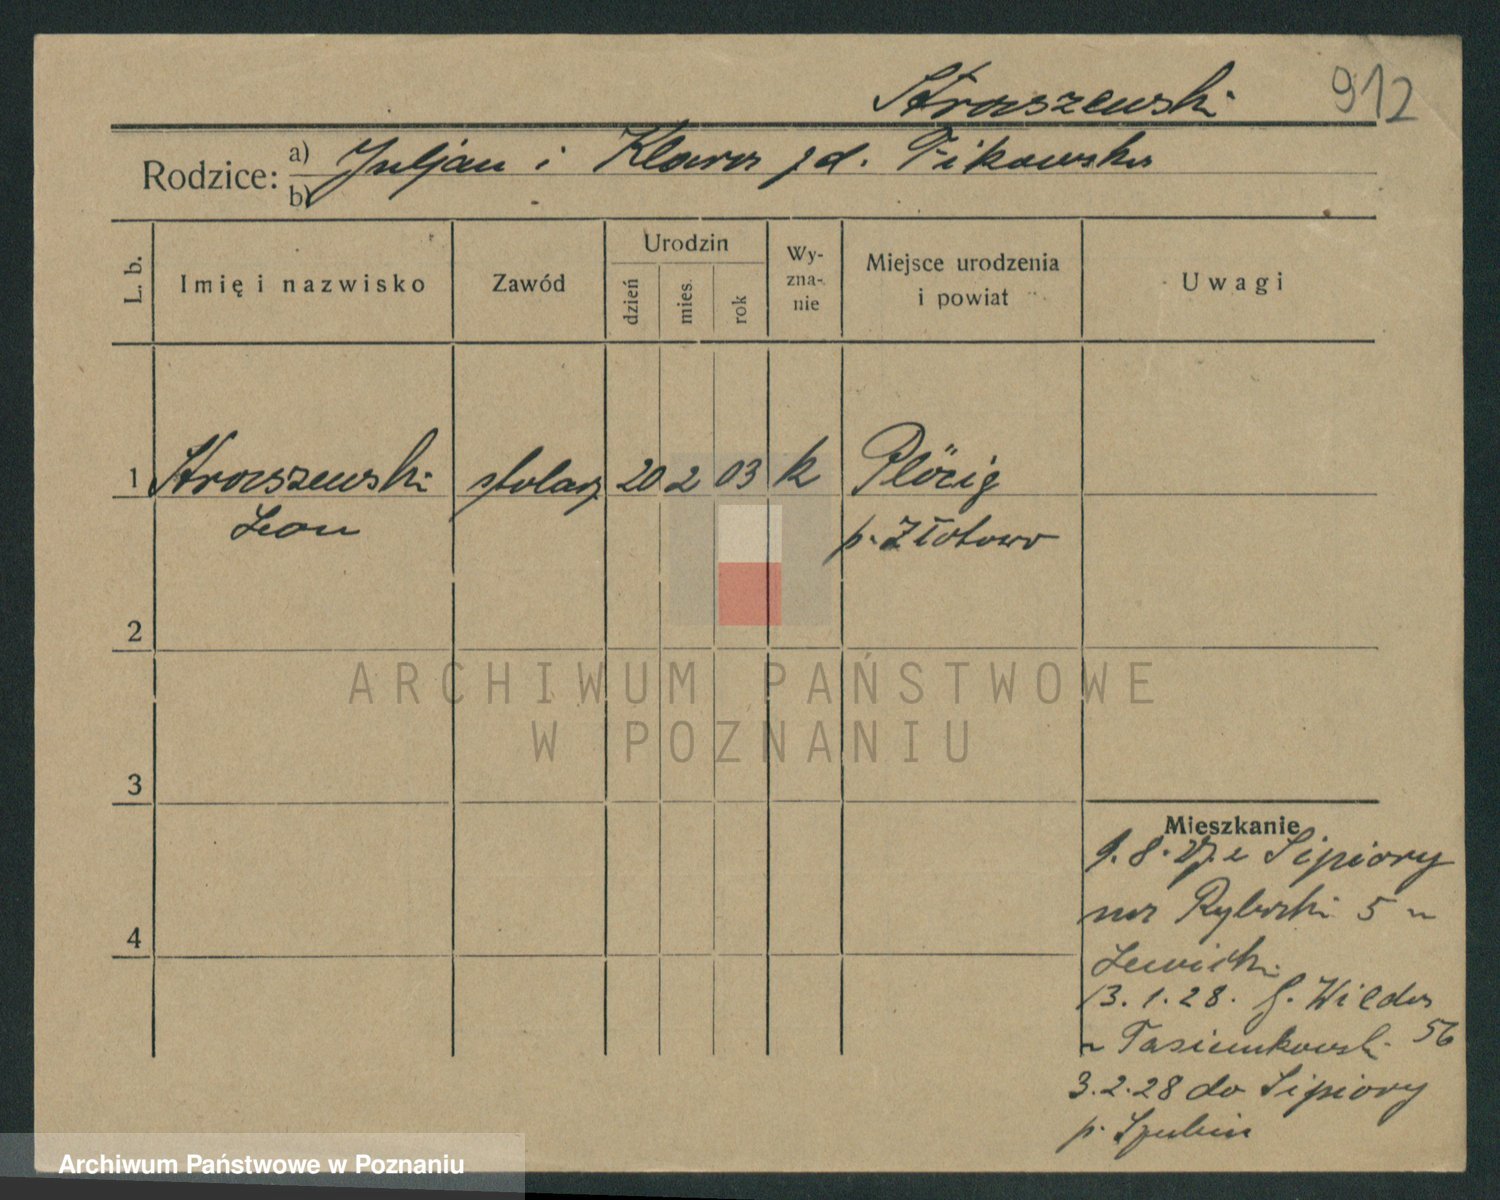 Straszewski
912
Rodzice:
a) Juljan i Klara zd. Fikowska
b)
L. b.
Imię i nazwisko
Zawód
Urodzin
dzień
mies.
rok
Wy-
zna-
nie
Miejsce urodzenia
i powiat
Uwagi
1 Straszewski stolarz 20 2 03 k Plözig
Leon p. Złotowo
2
3
4
ARCHIWUM PAŃSTWOWE
W POZNANIU
Mieszkanie
9.8.27. z Sipiory
na Rybaki 5 u
Lewicki
13.1.28. G. Wilda
u Tasiemkowski 56
3.2.28 do Sipiory
p. Szubin
Archiwum Państwowe w Poznaniu